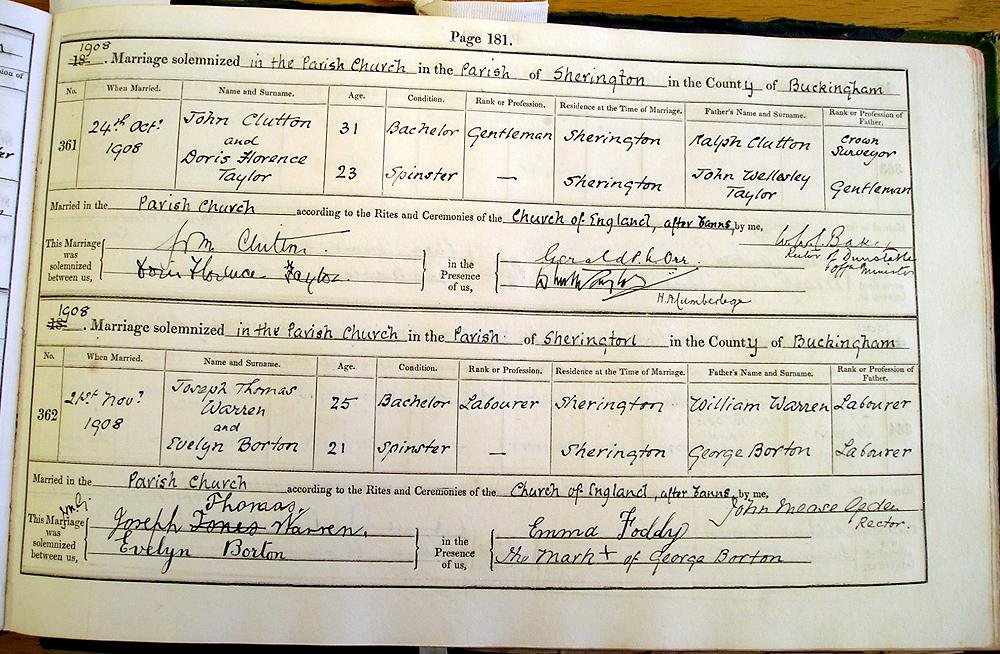 Page 181.
1908
18 . Marriage solemnized in the Parish Church in the Parish of Sherington in the County of Buckingham
No. When Married. Name and Surname. Age. Condition. Rank or Profession. Residence at the Time of Marriage. Father's Name and Surname. Rank or Profession of Father.
361 24th Oct. 1908 John Clutton 31 Bachelor Gentleman Sherington Ralph Clutton Crown Surveyor
and
Doris Florence Taylor 23 Spinster — Sherington John Wellesley Taylor Gentleman
Married in the Parish Church according to the Rites and Ceremonies of the Church of England, after Banns by me,
Rector of Dunstable
Offg Minister
This Marriage was solemnized between us, Jn Clutton
Doris Florence Taylor
in the Presence of us, Gerald P. L. Orr.
H.R. Cumberlege
1908
18 . Marriage solemnized in the Parish Church in the Parish of Sherington in the County of Buckingham
No. When Married. Name and Surname. Age. Condition. Rank or Profession. Residence at the Time of Marriage. Father's Name and Surname. Rank or Profession of Father.
362 21st Nov. 1908 Joseph Thomas Warren 25 Bachelor Labourer Sherington William Warren Labourer
and
Evelyn Borton 21 Spinster — Sherington George Borton Labourer
Married in the Parish Church according to the Rites and Ceremonies of the Church of England, after Banns by me,
John Mease Ogden
Rector.
Thomas
This Marriage was solemnized between us, Joseph Jones Warren.
Evelyn Borton
in the Presence of us, Emma Foddy
The Mark + of George Borton